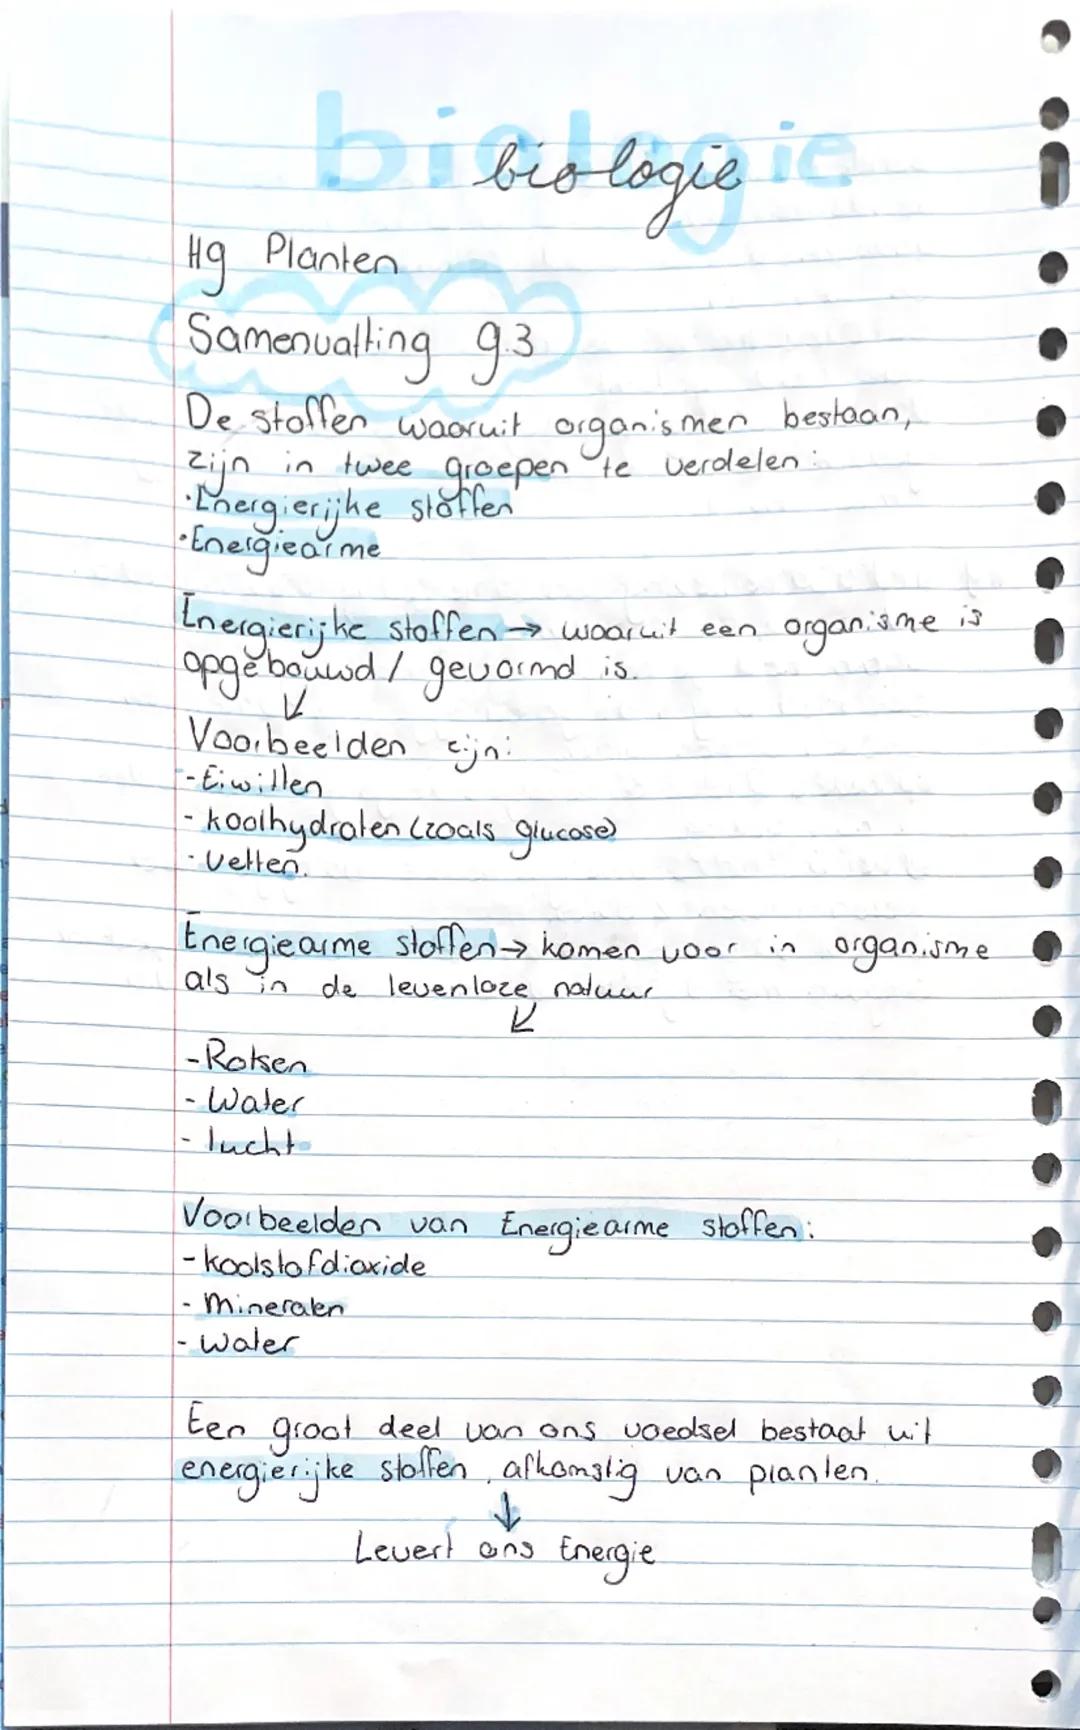 biologie
biologie
H9 Planten
Samenvatting 9.3
De stoffen waaruit organismen bestaan,
zijn in twee groepen te verdelen:
·Energierijke stoffen
·Energiearme
Energierijke stoffen → waaruit een organisme is
opgebouwd / gevormd is.
↙
Voorbeelden zijn:
- Eiwitten
- koolhydraten (zoals glucose)
- vetten.
Energiearme stoffen → komen voor in organisme
als in de levenloze natuur
↙
- Rotsen
- Water
- lucht
Voorbeelden van Energiearme stoffen:
- koolstofdioxide
- Mineralen
- water
Een groot deel van ons voedsel bestaat uit
energierijke stoffen, afkomstig van planten.
↓
Levert ons Energie